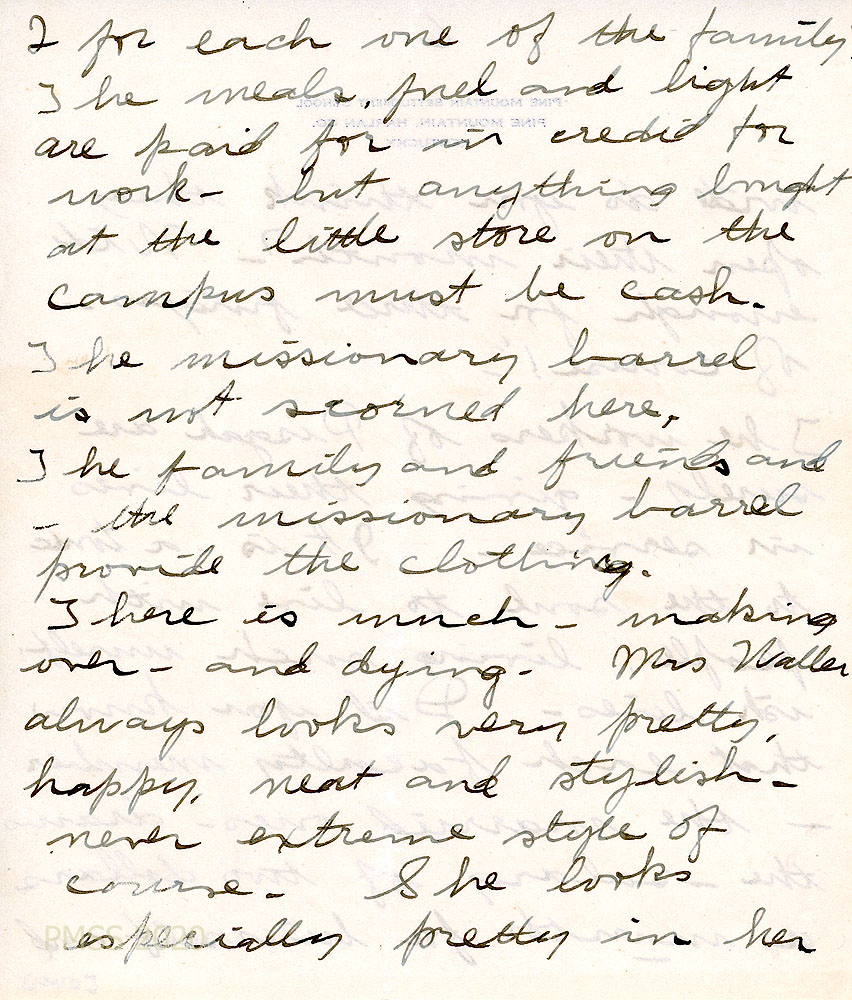 2 for each one of the family.
The meals, fuel and light
are paid for in credit for
work - but anything bought
at the little store on the
campus must be cash.
The missionary barrel
is not scorned here.
The family and friends and
- the missionary barrel
provide the clothing.
There is much - making
over - and dying. Mrs Waller
always looks very pretty,
happy, neat and stylish -
never extreme style of
course. She looks
especially pretty in her
PINE MOUNTAIN SETTLEMENT SCHOOL
PINE MOUNTAIN, HARLAN CO.
KENTUCKY